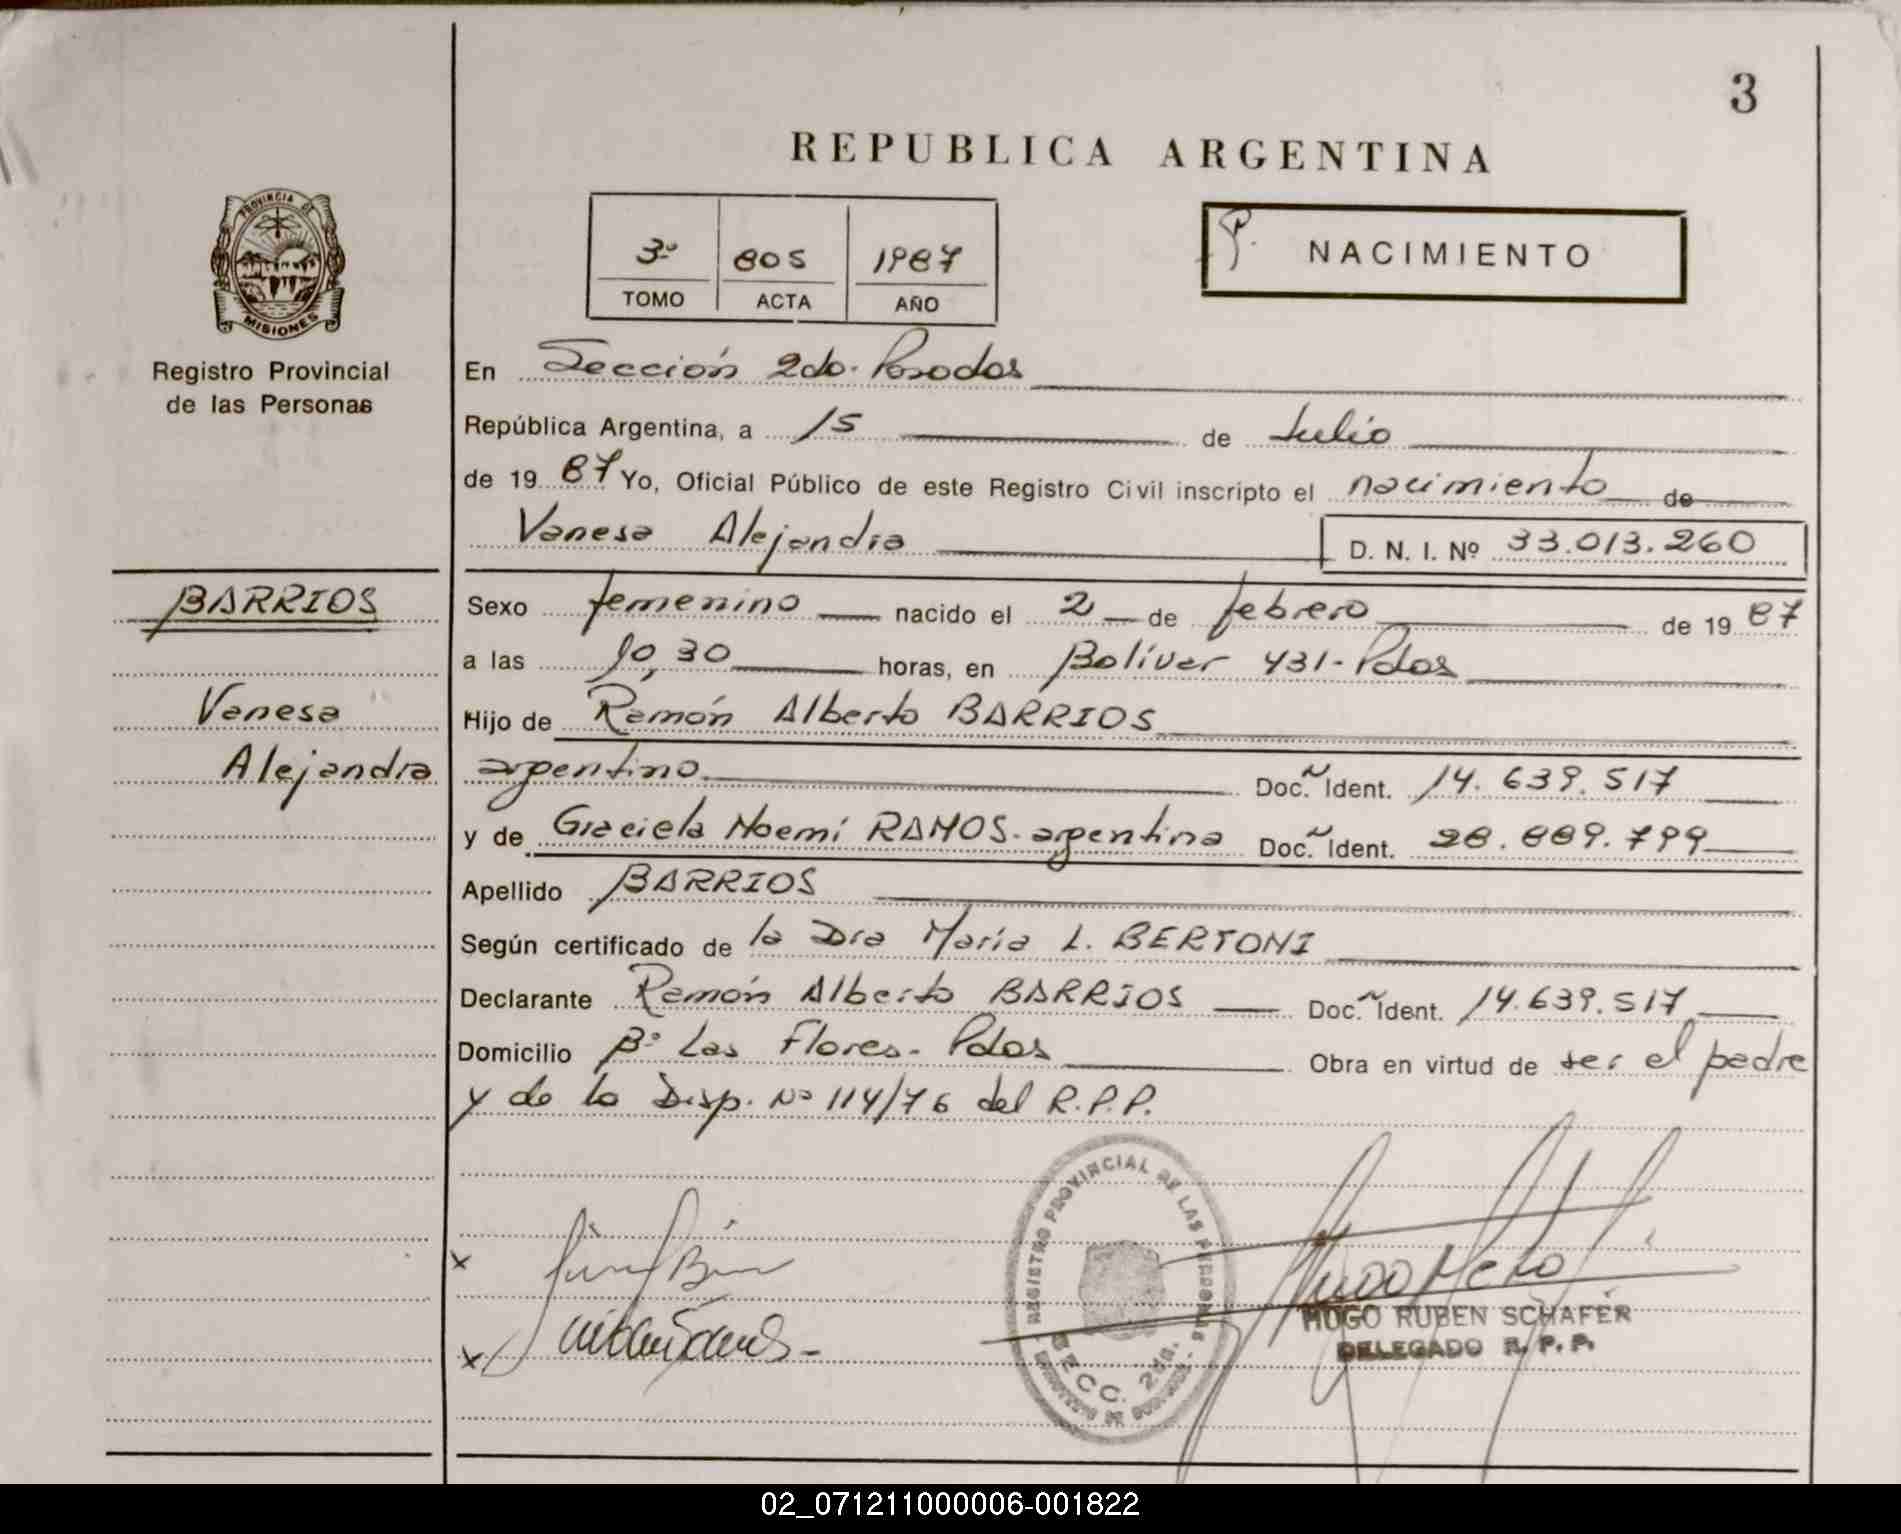 3
REPUBLICA ARGENTINA
PROVINCIA DE
MISIONES
Registro Provincial
de las Personas
3º 805 1987
TOMO ACTA AÑO
NACIMIENTO
En Sección 2da. Posadas
República Argentina, a 15 de Julio
de 19 87 Yo, Oficial Público de este Registro Civil inscripto el nacimiento de
Vanesa Alejandra D. N. I. Nº 33.013.260
BARRIOS
Vanesa
Alejandra
Sexo femenino nacido el 2 de febrero de 19 87
a las 10,30 horas, en Bolívar 431-Pdas
Hijo de Ramón Alberto BARRIOS
argentino Doc. Ident. 14.639.517
y de Graciela Noemí RAMOS-argentina Doc. Ident. 28.889.799
Apellido BARRIOS
Según certificado de la Dra María L. BERTONI
Declarante Ramón Alberto BARRIOS Doc. Ident. 14.639.517
Domicilio Bº Las Flores-Pdas Obra en virtud de ser el padre
y de la Disp. Nº 114/76 del R.P.P.
REGISTRO PROVINCIAL DE LAS PERSONAS
SECC. 2da.
x
x
HUGO RUBEN SCHAFER
DELEGADO R. P. P.
02_071211000006-001822